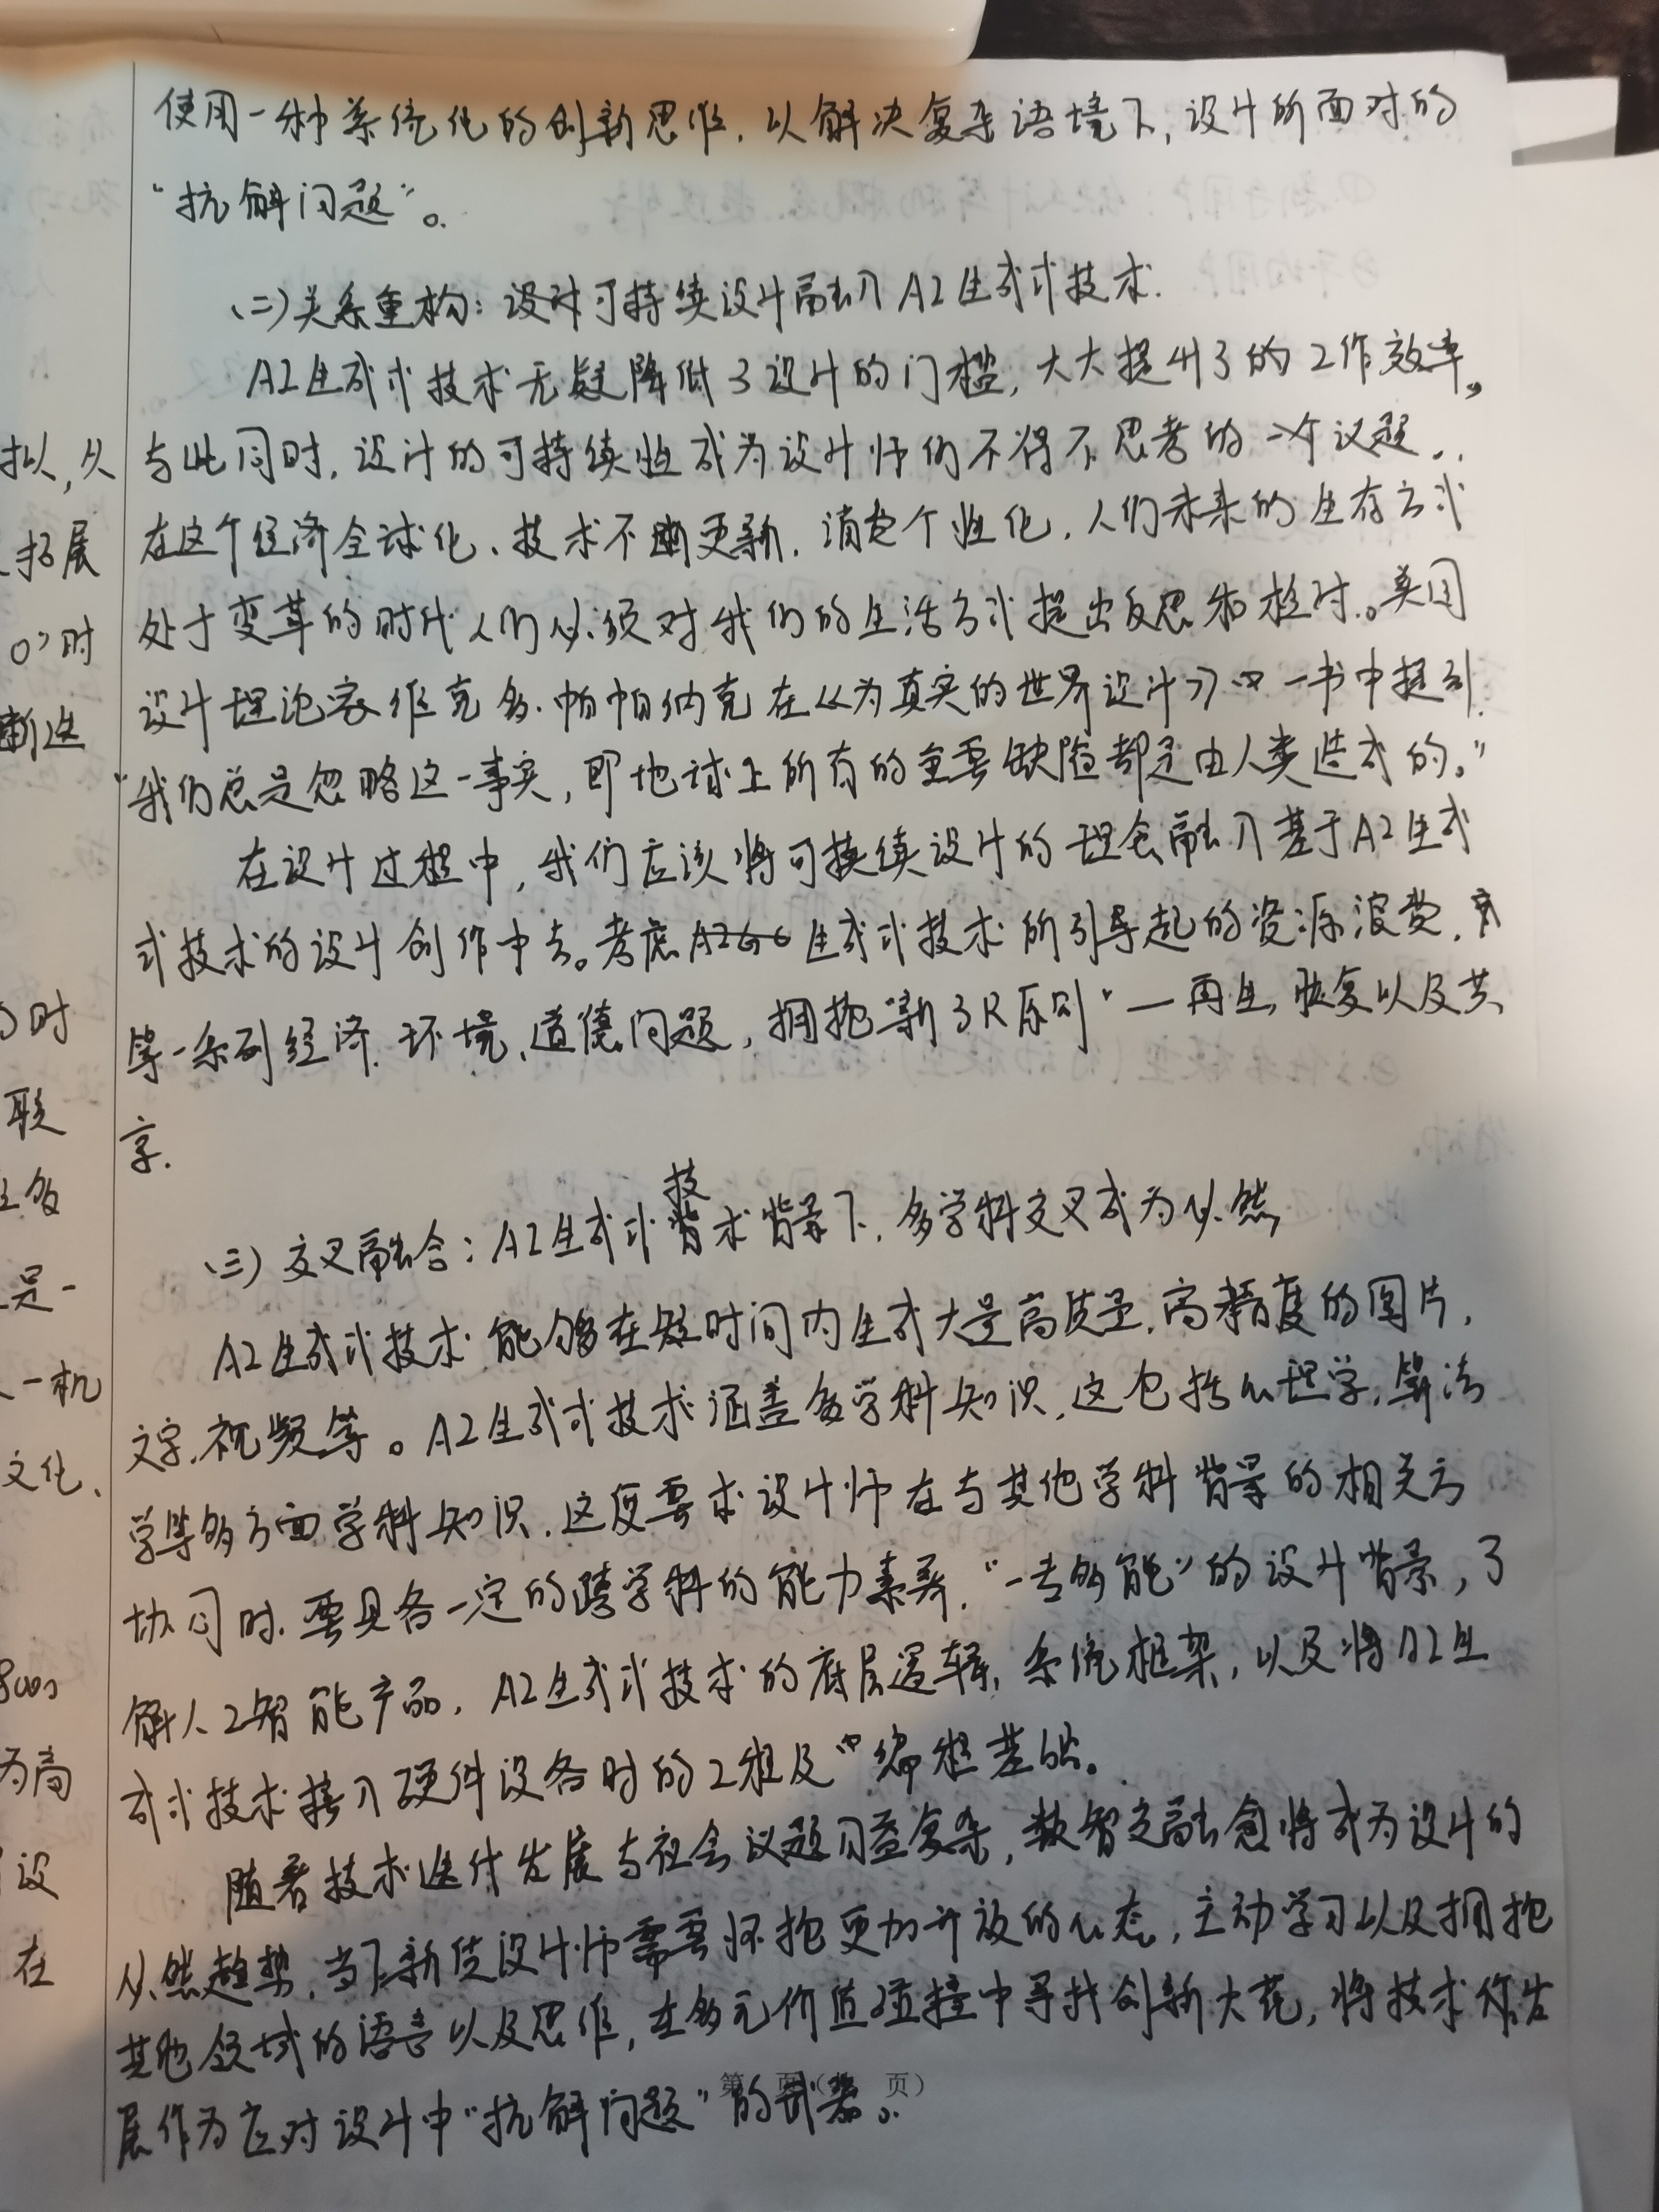 使用一种系统化的创新思维，以解决复杂语境下，设计所面对的
“抗解问题”。
(二)关系重构：设计可持续设计融入AI生成式技术.
AI生成式技术无疑降低了设计的门槛，大大提升了的工作效率。
与此同时，设计的可持续性成为设计师们不得不思考的一个议题.
在这个经济全球化、技术不断更新，消费个性化，人们未来的生存方式
处于变革的时代人们必须对我们的生活方式提出反思和检讨。美国
设计理论家维克多·帕帕纳克在《为真实的世界设计》一书中提到
“我们总是忽略这一事实，即地球上所有的重要缺陷都是由人类造成的。”
在设计过程中，我们应该将可持续设计的理念融入基于AI生成
式技术的设计创作中去。考虑生成式技术所引导起的资源浪费，
等一系列经济、环境、道德问题，拥抱“新3R原则”—再生，恢复以及共
享.
(三)交叉融合：AI生成式技术背景下，多学科交叉成为必然
AI生成式技术能够在短时间内生成大量高质量，高精度的图片，
文字，视频等。AI生成式技术涵盖多学科知识，这包括心理学，算法
学等多方面学科知识，这便要求设计师在与其他学科背景的相关方
协同时，要具备一定的跨学科的能力素养，“一专多能”的设计背景，了
解人工智能产品，AI生成式技术的底层逻辑，系统框架，以及将AI生
成式技术接入硬件设备时的工程及编程基础。
随着技术迭代发展与社会议题日益复杂，数智交融愈将成为设计的
必然趋势，当下新使设计师需要怀抱更加开放的心态，主动学习以及拥抱
其他领域的语言以及思维，在多元价值碰撞中寻找创新火花，将技术发
展作为应对设计中“抗解问题”的武器。
第 页( 页)
拟，从
拓展
时
断迭
时
联
多
是一
一机
文化、
为高
设
在